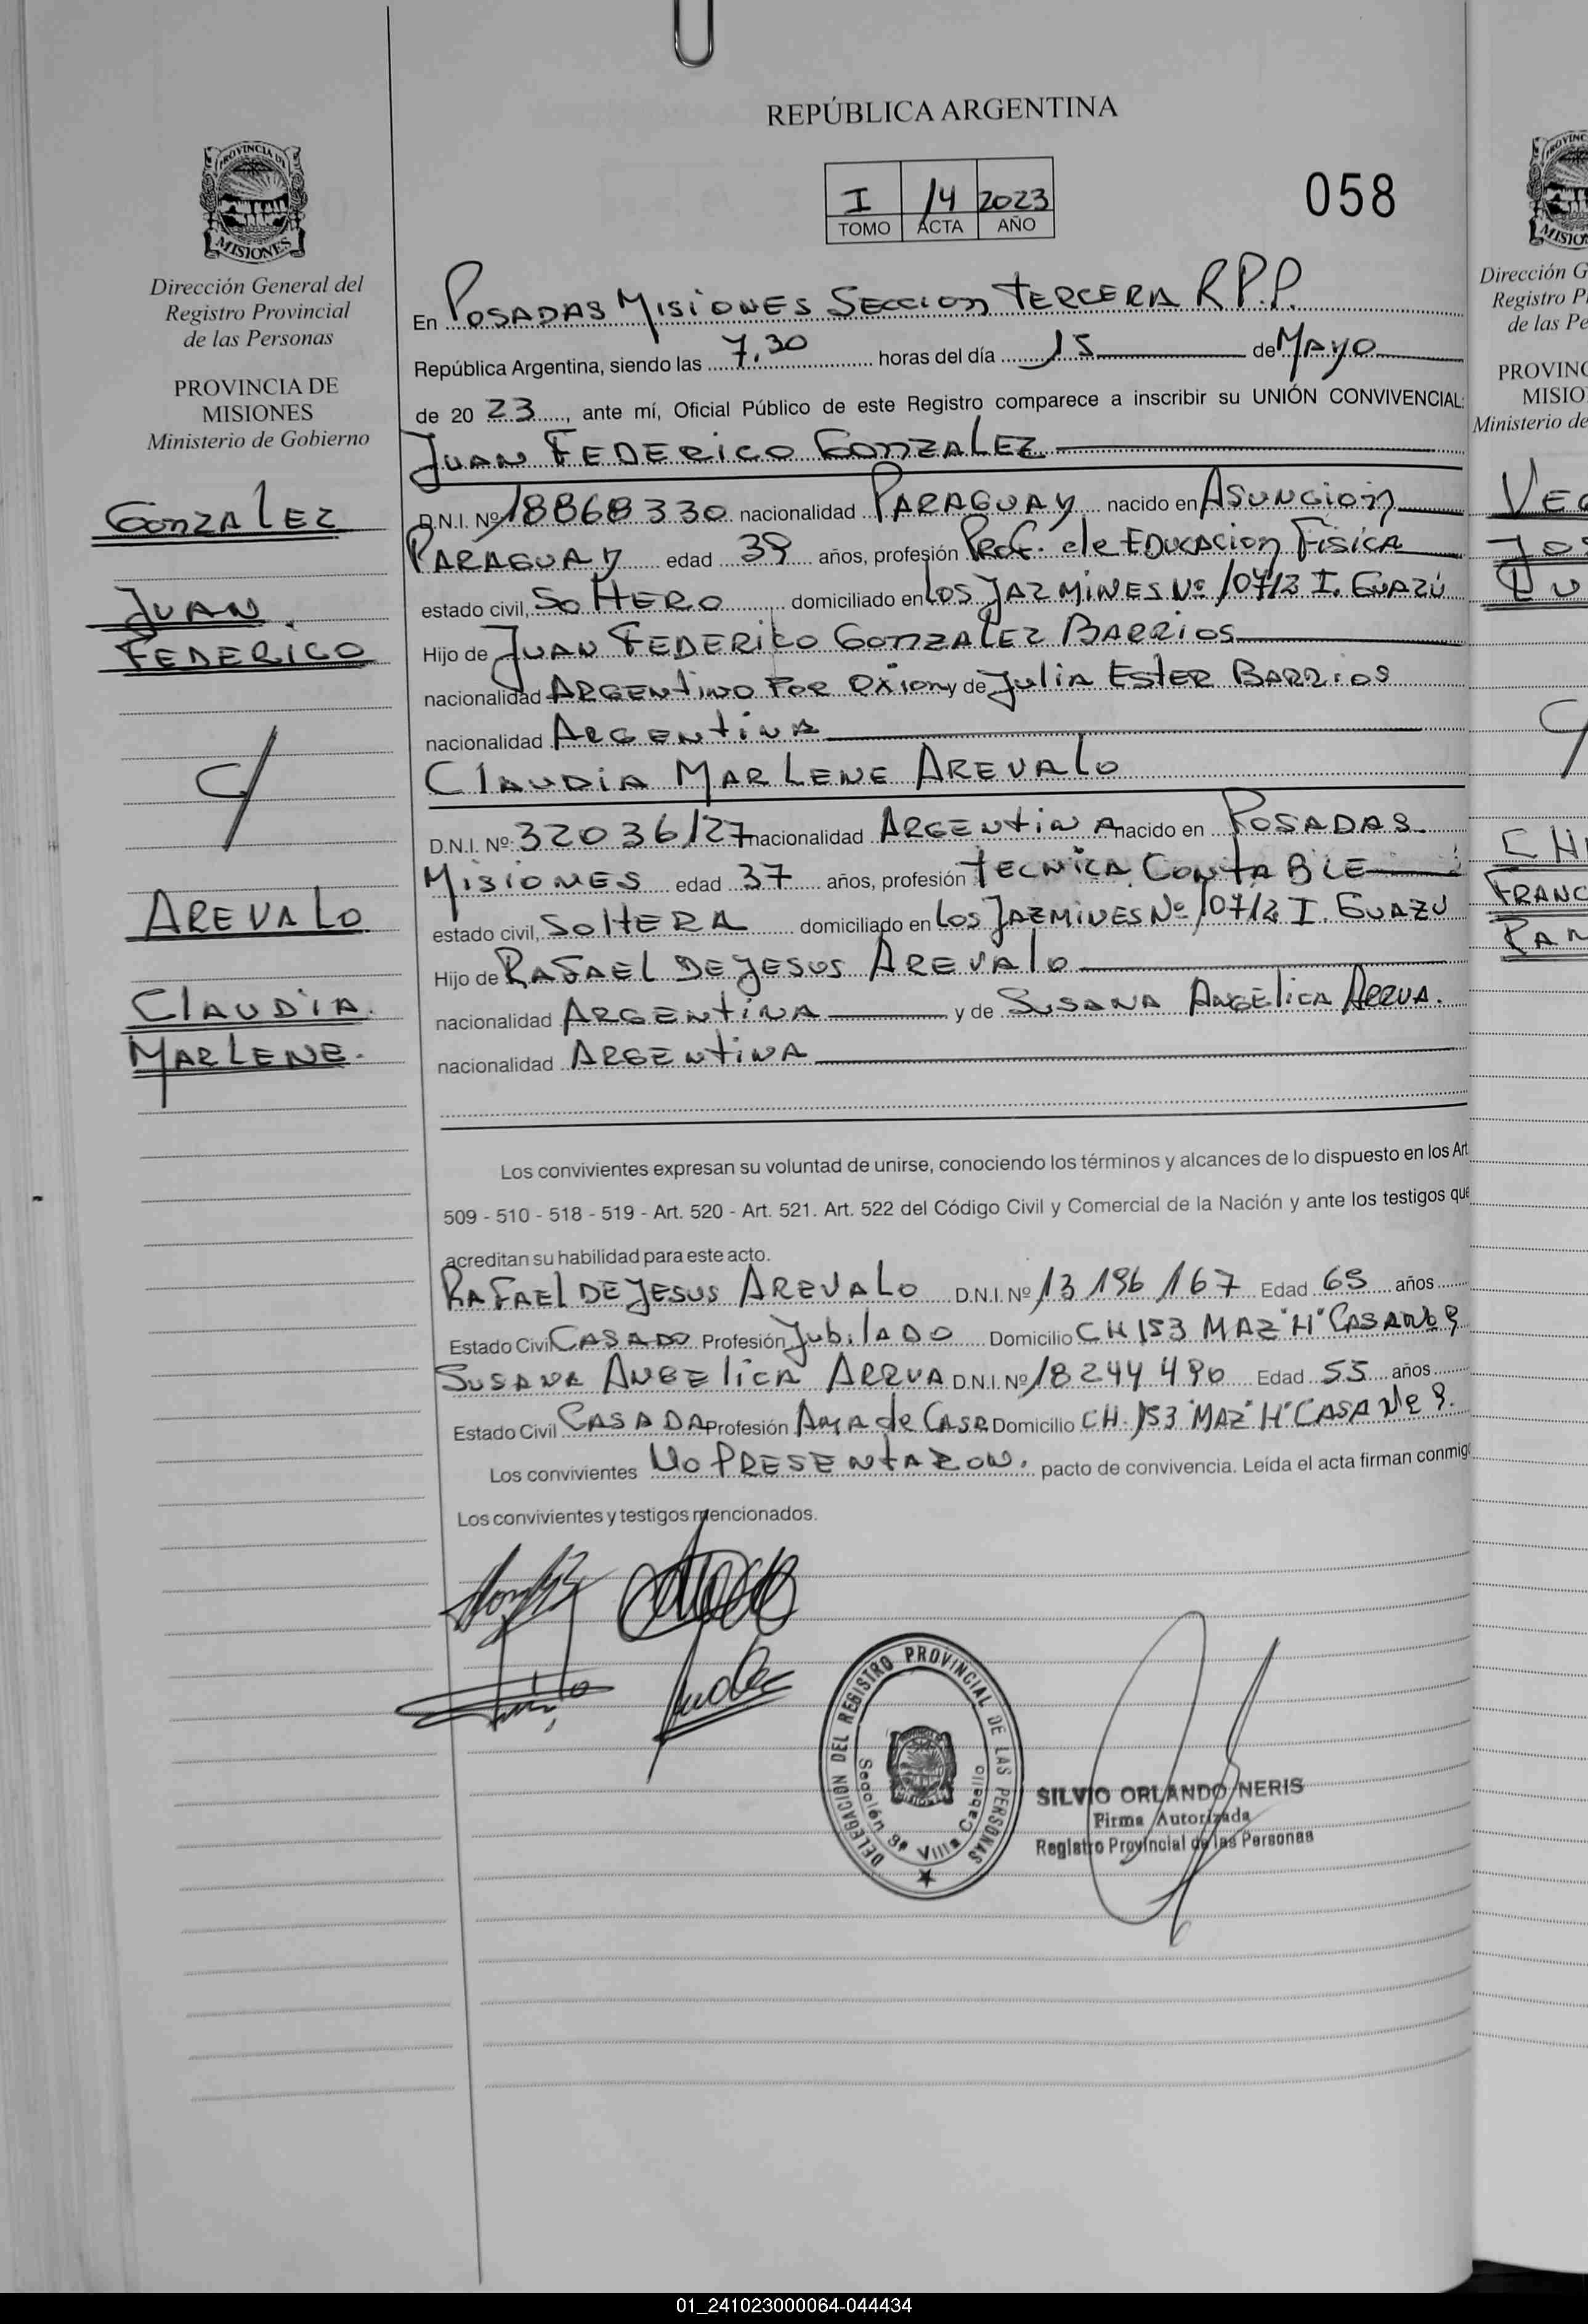 REPÚBLICA ARGENTINA
I 14 2023
TOMO ACTA AÑO
058
PROVINCIA DE
MISIONES
Dirección General del
Registro Provincial
de las Personas
PROVINCIA DE
MISIONES
Ministerio de Gobierno
GONZALEZ
JUAN
FEDERICO
AREVALO
CLAUDIA
MARLENE.
En POSADAS MISIONES SECCION TERCERA R.P.P.
República Argentina, siendo las 7.30 horas del día 15 de MAYO
de 20 23, ante mí, Oficial Público de este Registro comparece a inscribir su UNIÓN CONVIVENCIAL:
JUAN FEDERICO GONZALEZ
D.N.I. Nº 18868330 nacionalidad PARAGUAY nacido en ASUNCION
PARAGUAY edad 39 años, profesión Prof. de EDUCACION FISICA
estado civil, SOLTERO domiciliado en LOS JAZMINES Nº I. GUAZÚ
Hijo de JUAN FEDERICO GONZALEZ BARRIOS
nacionalidad ARGENTINO POR y de JULIA ESTER BARRIOS
nacionalidad ARGENTINA
CLAUDIA MARLENE AREVALO
D.N.I. Nº 32036127 nacionalidad ARGENTINA nacido en POSADAS
MISIONES edad 37 años, profesión TECNICA CONTABLE
estado civil, SOLTERA domiciliado en LOS JAZMINES Nº I. GUAZU
Hijo de RAFAEL DE JESUS AREVALO
nacionalidad ARGENTINA y de SUSANA ANGELICA ARRUA.
nacionalidad ARGENTINA
Los convivientes expresan su voluntad de unirse, conociendo los términos y alcances de lo dispuesto en los Art
509 - 510 - 518 - 519 - Art. 520 - Art. 521. Art. 522 del Código Civil y Comercial de la Nación y ante los testigos que
acreditan su habilidad para este acto.
RAFAEL DE JESUS AREVALO D.N.I. Nº 13 196 167 Edad 65 años
Estado Civil CASADO Profesión JUBILADO Domicilio CH 153 MAZ "H" CASA Nº 9
SUSANA ANGELICA ARRUA D.N.I. Nº 18244 490 Edad 55 años
Estado Civil CASADA Profesión AMA de CASA Domicilio CH. 153 MAZ "H" CASA Nº 9.
Los convivientes NO PRESENTARON. pacto de convivencia. Leída el acta firman conmigo
Los convivientes y testigos mencionados.
DELEGACIÓN DEL REGISTRO PROVINCIAL DE LAS PERSONAS
Sección 3ª Villa Cabello
SILVIO ORLANDO NERIS
Firma Autorizada
Registro Provincial de las Personas
Dirección G
Registro P
de las Pe
PROVINC
MISIO
Ministerio de
01_241023000064-044434